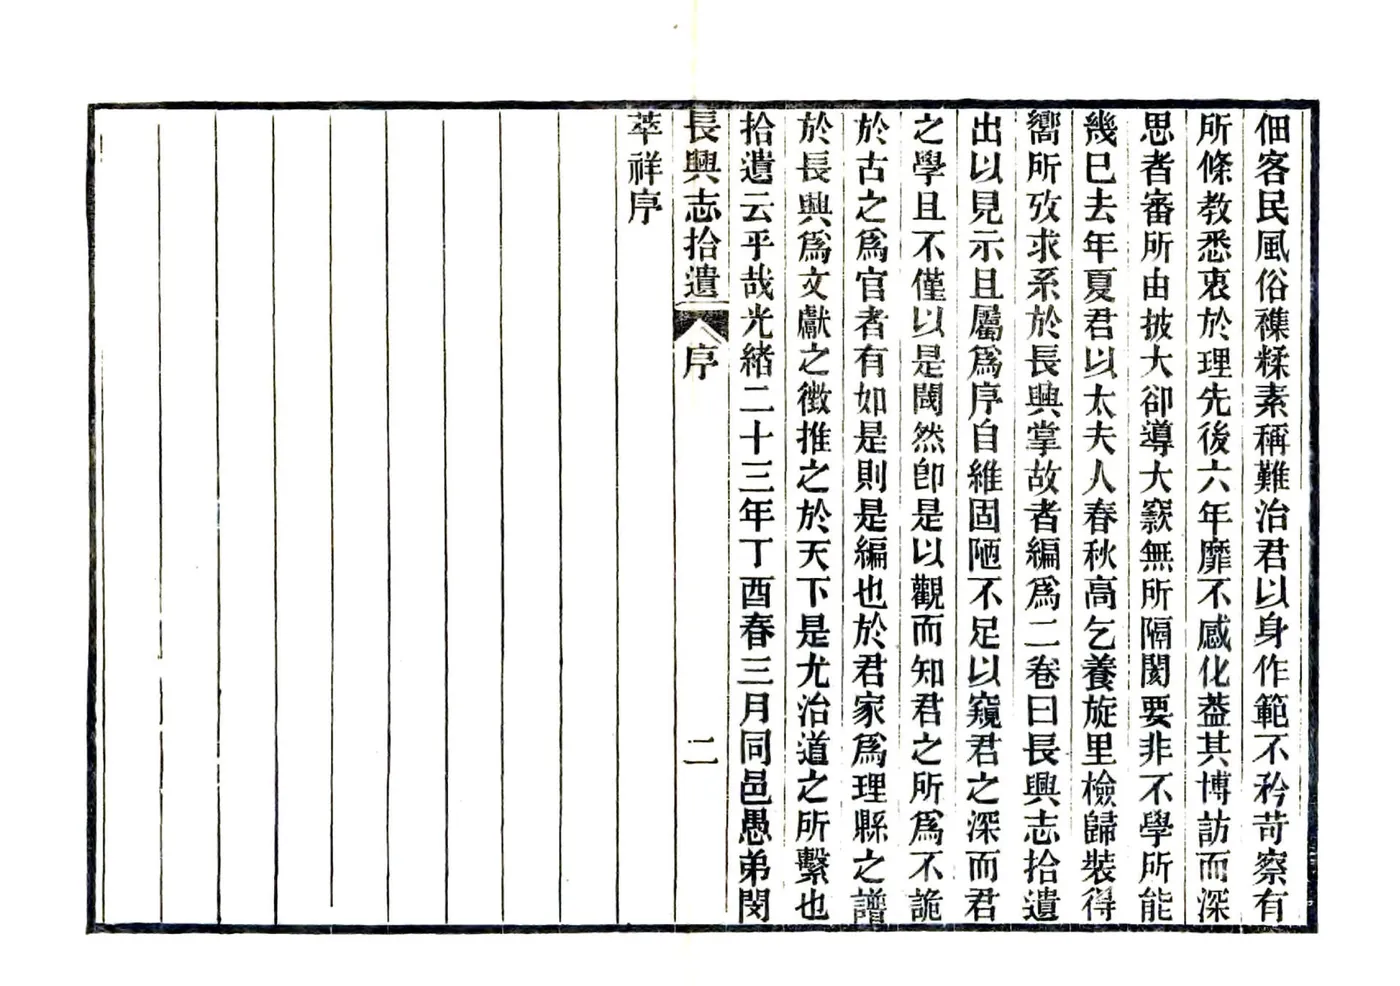 佃客民風俗襍糅素稱難治君以身作範不矜苛察有
所條教悉衷於理先後六年靡不感化葢其博訪而深
思者審所由披大卻導大窾無所隔閡要非不學所能
幾巳去年夏君以太夫人春秋高乞養旋里檢歸裝得
嚮所攷求系於長興掌故者編爲二卷曰長興志拾遺
出以見示且屬爲序自維固陋不足以窺君之深而君
之學且不僅以是閾然卽是以觀而知君之所爲不詭
於古之爲官者有如是則是編也於君家爲理縣之譜
於長興爲文獻之徵推之於天下是尤治道之所繫也
拾遺云乎哉光緒二十三年丁酉春三月同邑愚弟閔
長興志拾遺 序 二
萃祥序